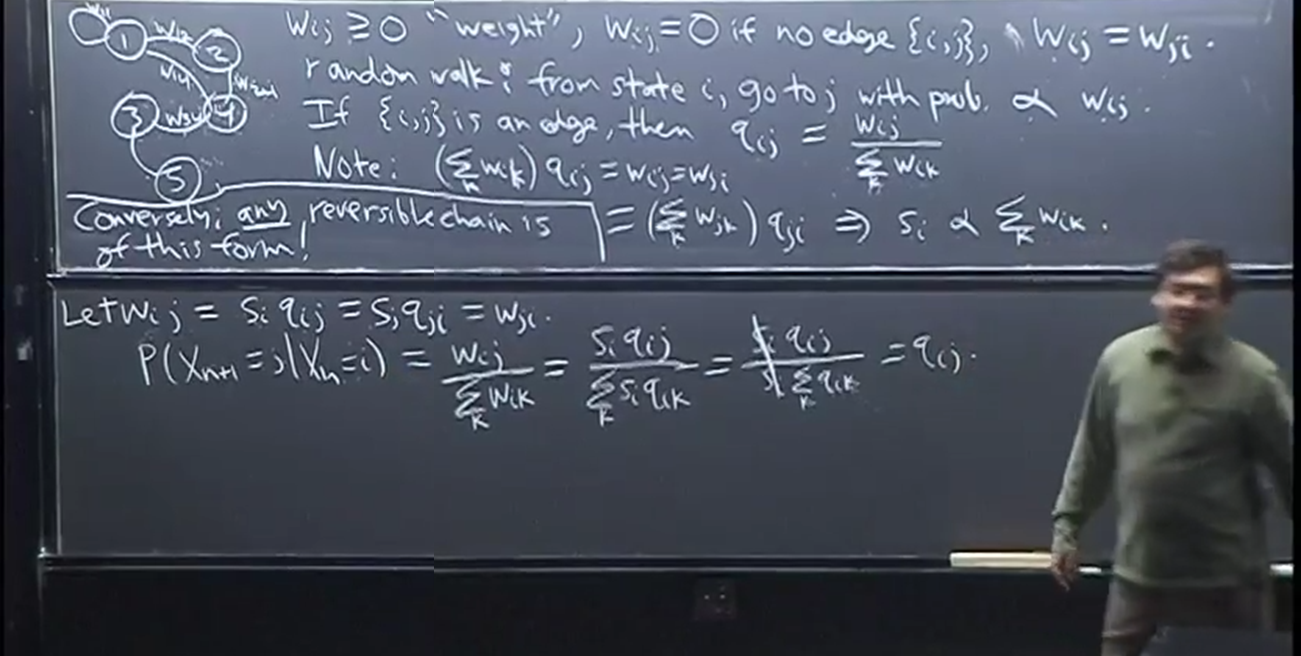 w₁₁
1 w₁₂ 2
w₁₄ w₂₄
3 w₃₄ 4
5
wᵢⱼ ≥ 0 "weight", wᵢⱼ = 0 if no edge {i,j}, wᵢⱼ = wⱼᵢ.
random walk: from state i, go to j with prob. ∝ wᵢⱼ.
If {i,j} is an edge, then qᵢⱼ = wᵢⱼ / Σₖ wᵢₖ
Note: (Σₖ wᵢₖ) qᵢⱼ = wᵢⱼ = wⱼᵢ
= (Σₖ wⱼₖ) qⱼᵢ ⇒ sᵢ ∝ Σₖ wᵢₖ.
Conversely, any reversible chain is
of this form!
Let wᵢⱼ = sᵢ qᵢⱼ = sⱼ qⱼᵢ = wⱼᵢ.
P(Xₙ₊₁ = j | Xₙ = i) = wᵢⱼ / Σₖ wᵢₖ = sᵢ qᵢⱼ / Σₖ sᵢ qᵢₖ = sᵢ qᵢⱼ / sᵢ Σₖ qᵢₖ = qᵢⱼ.